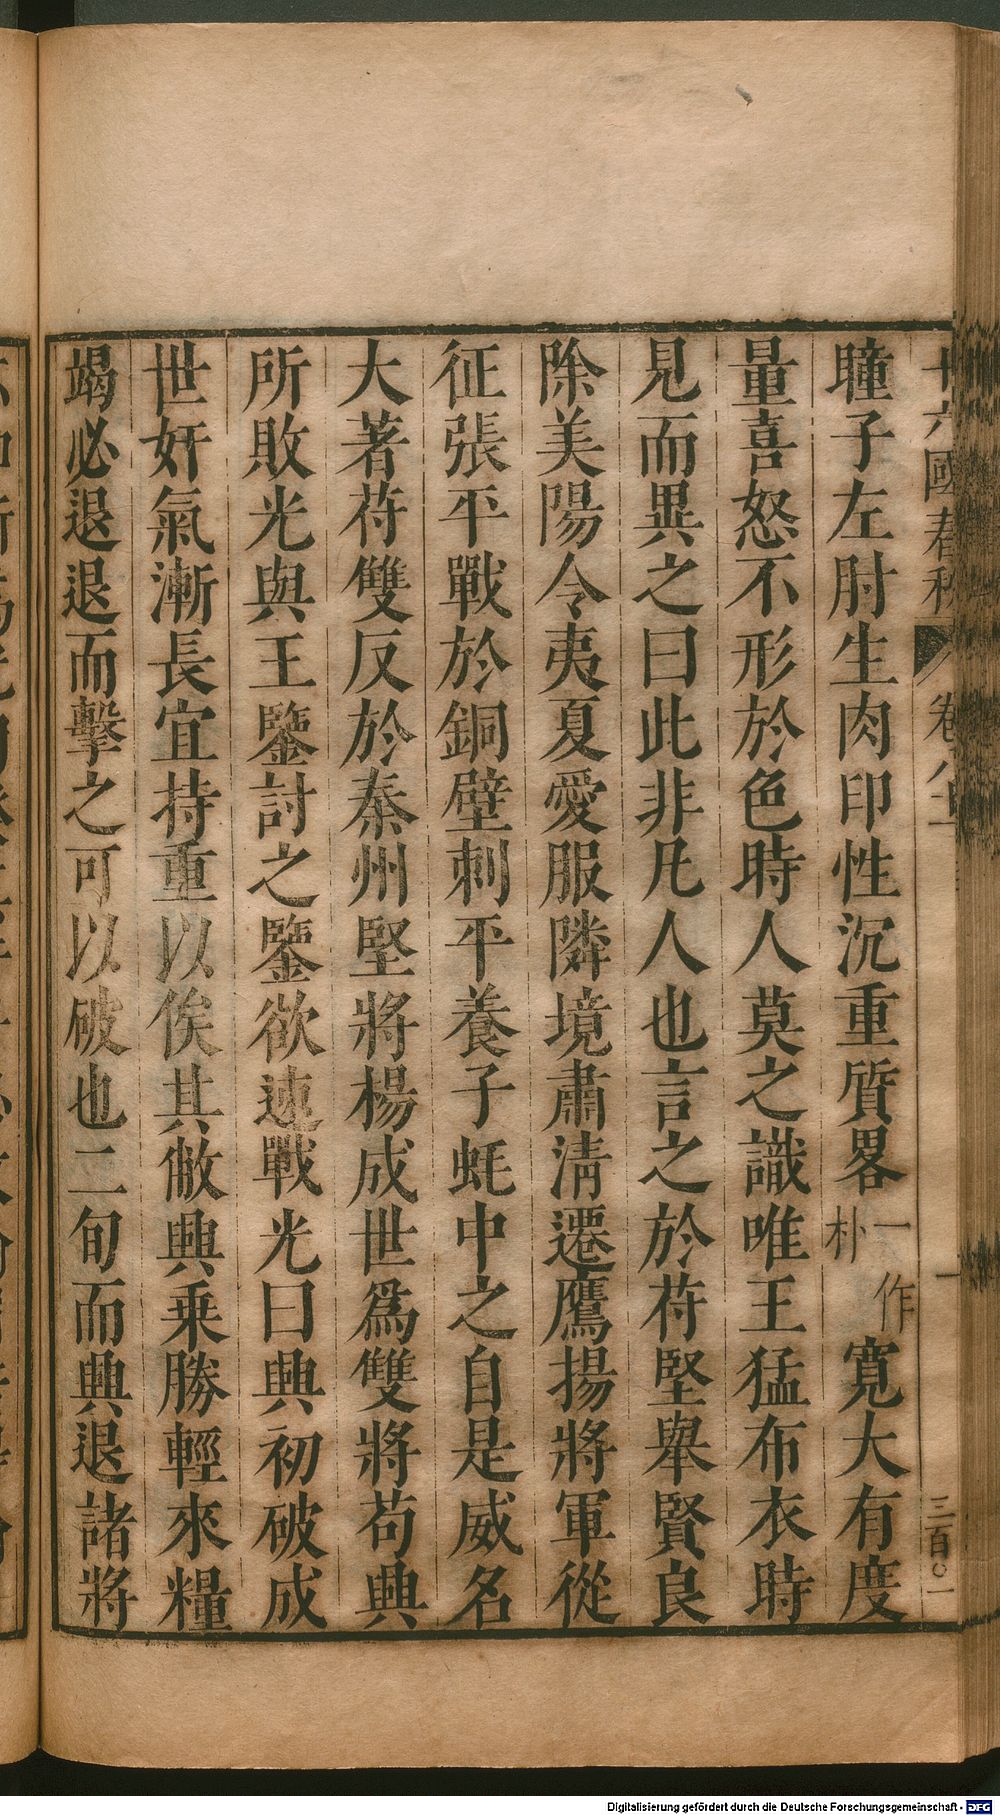 瞳子左肘生肉印性沉重質畧一作朴寛大有度
量喜怒不形於色時人莫之識唯王猛布衣時
見而異之曰此非凡人也言之於苻堅舉賢良
除美陽令夷夏愛服隣境肅淸遷鷹揚將軍從
征張平戰於銅壁刺平養子蚝中之自是威名
大著苻雙反於秦州堅將楊成世爲雙將苟興
所敗光與王鑒討之鑒欲速戰光曰興初破成
世奸氣漸長宜持重以俟其敝興乗勝輕來糧
竭必退退而擊之可以破也二旬而興退諸將
十六國春秋 卷八十一 三百〇一
Digitalisierung gefördert durch die Deutsche Forschungsgemeinschaft - DFG